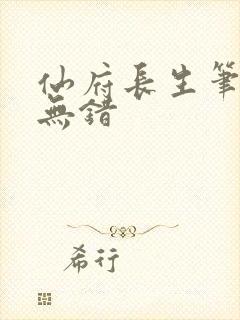 仙府長生筆
無錯
希行